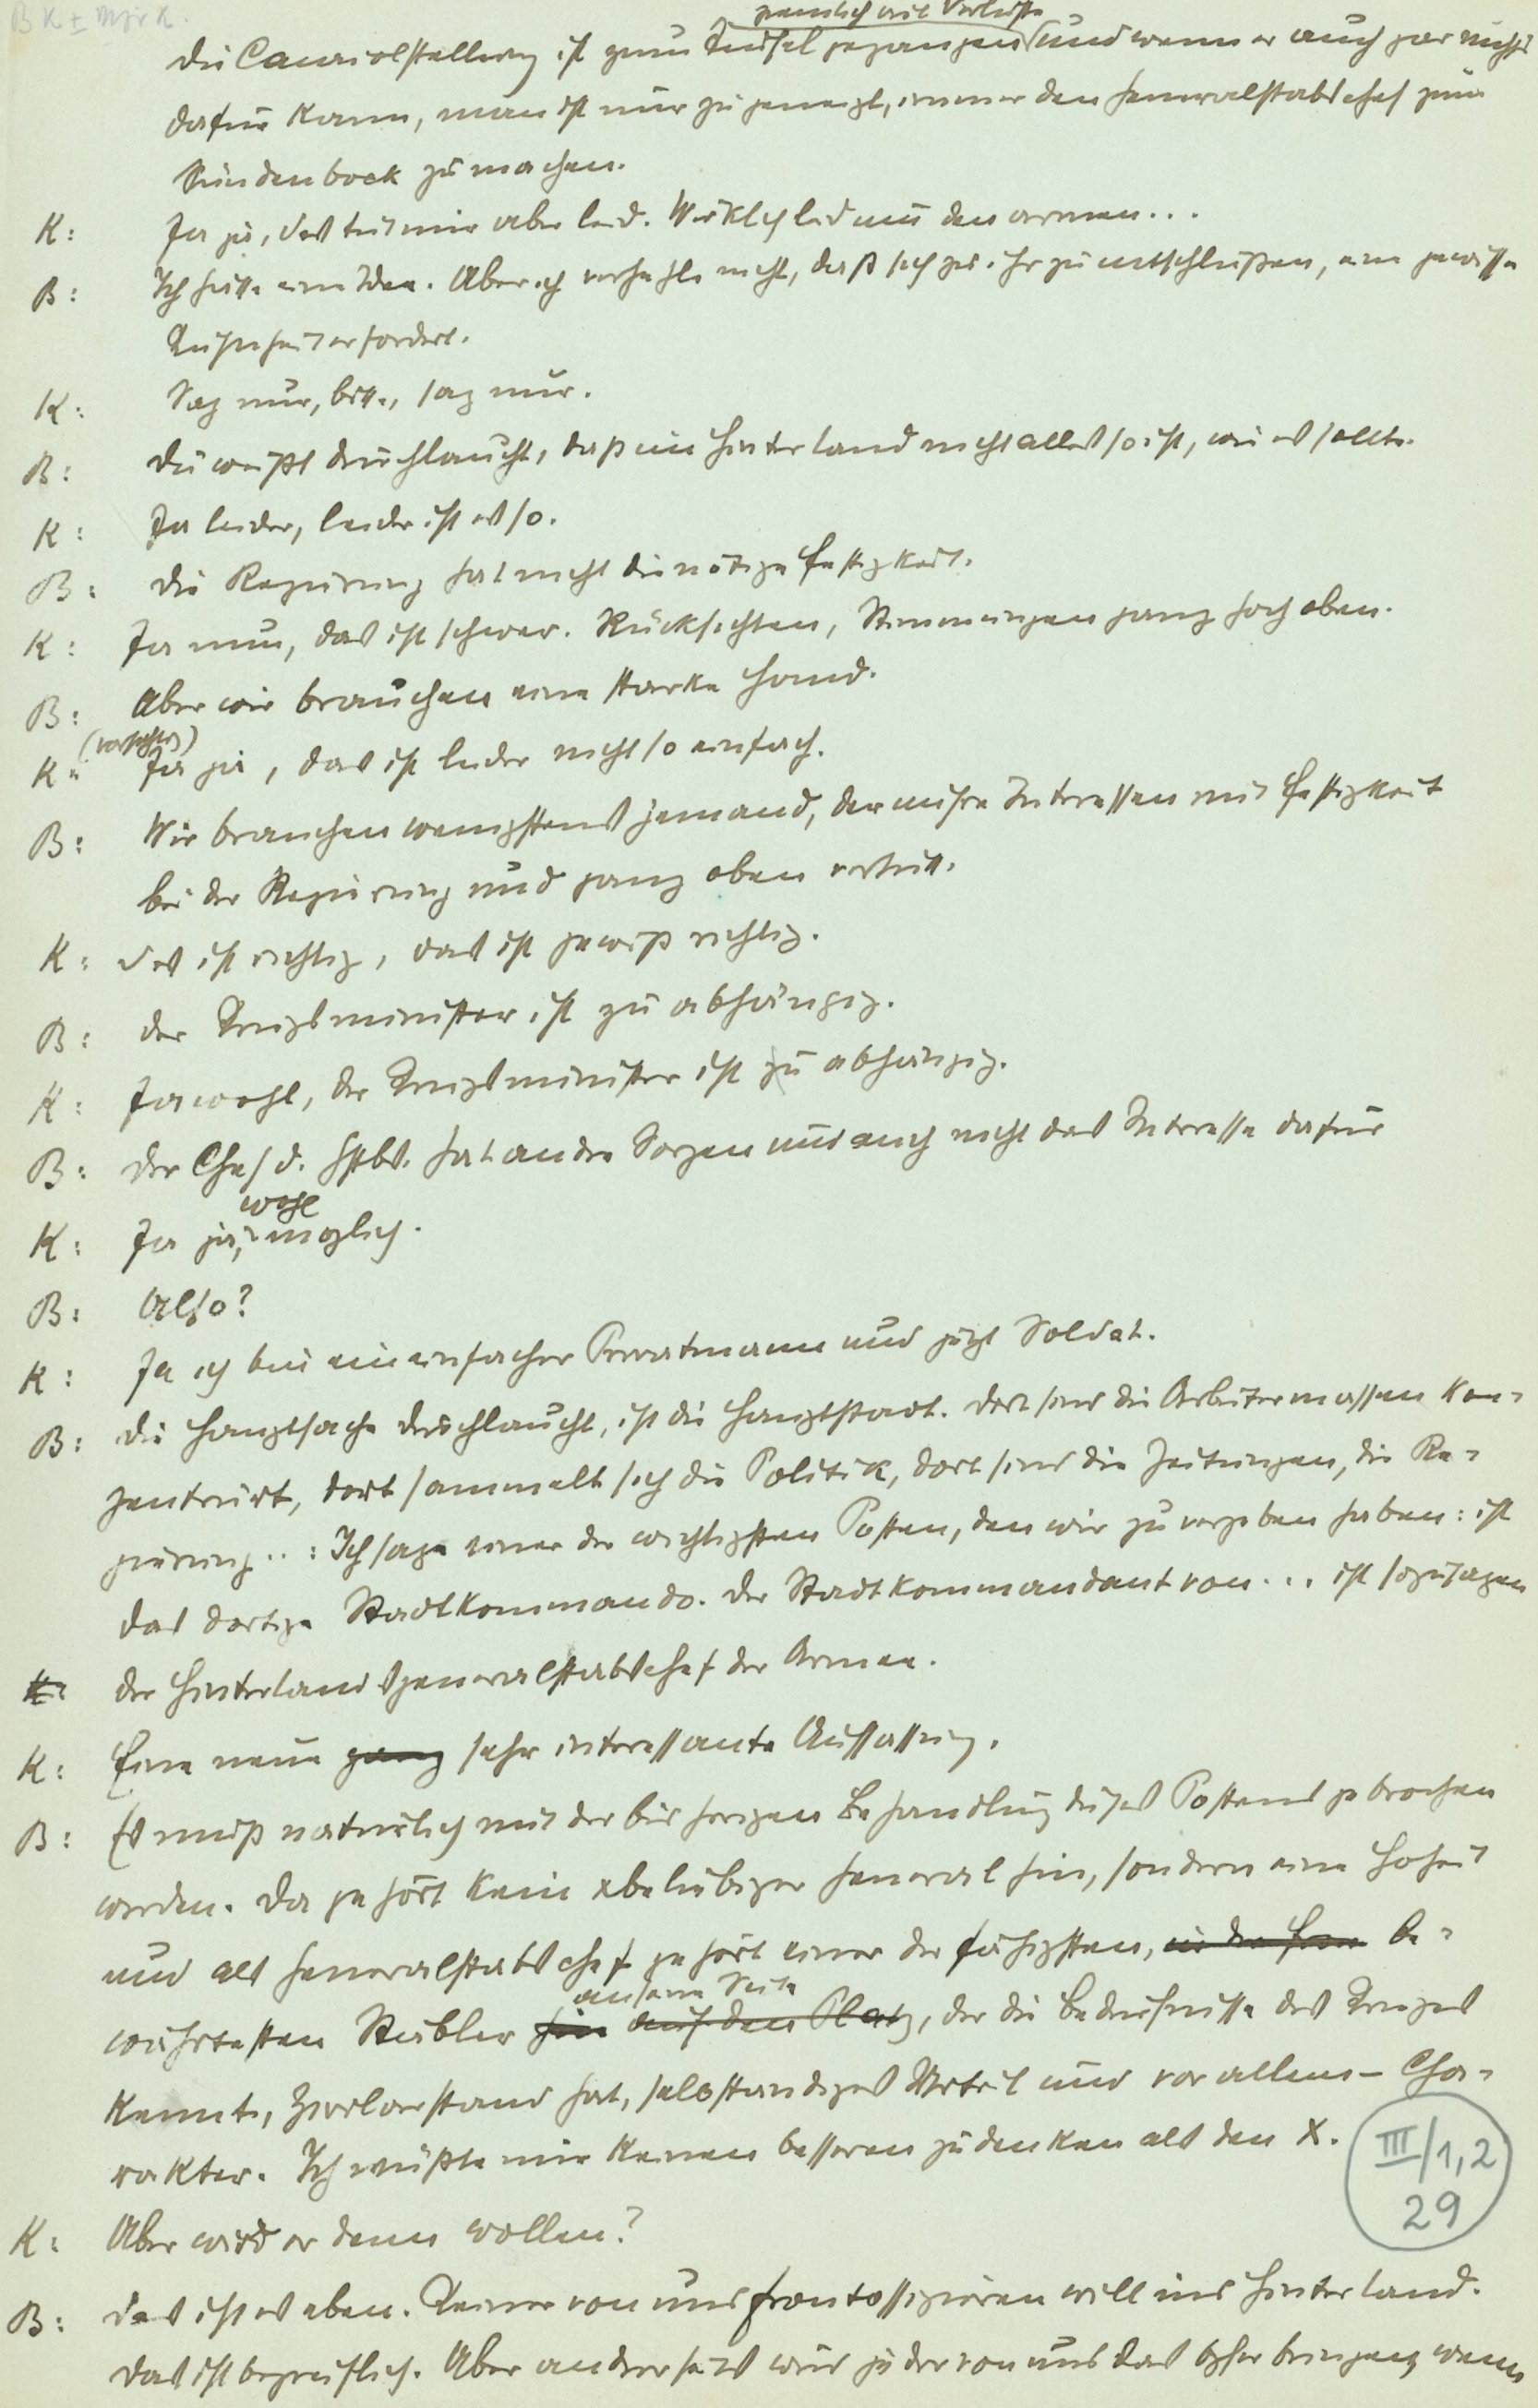 BK ± Mjr K.
ziemlich viel Verluste
Die Canaiolstellung ist zum Teufel gegangen und wenn er auch gar nichts
dafür kann, man ist nur zu geneigt, immer den Generalstabschef zum
Sündenbock zu machen.
K: Ja ja, das tut mir aber leid. Wirklich leid um den armen...
B: Ich hätte eine Idee. Aber ich verhehle nicht, daß sich zu ihr zu entschließen, eine gewisse
Kühnheit erfordert.
K: Sag nur, bitte, sag nur.
B: Du weißt Durchlaucht, daß im Hinterland nicht alles so ist, wie es sollte.
K: Ja leider, leider ist es so.
B: Die Regierung hat nicht die nötige Festigkeit.
K: Ja nun, das ist schwer. Rücksichten, Stimmungen ganz hoch oben.
B: Aber wir brauchen eine starke Hand.
(vorsichtig)
K: Ja ja, das ist leider nicht so einfach.
B: Wir brauchen wenigstens jemand, der unsre Interessen mit Festigkeit
bei der Regierung und ganz oben vertritt.
K: Das ist richtig, das ist gewiß richtig.
B: Der Kriegsminister ist zu abhängig.
K: Jawohl, der Kriegsminister ist zu abhängig.
B: Der Chef d. Gstbs. hat andre Sorgen und auch nicht das Interesse dafür
wohl
K: Ja ja, möglich.
B: Also?
K: Ja ich bin ein einfacher Privatmann und jetzt Soldat.
B: Die Hauptsache Durchlaucht, ist die Hauptstadt. Dort sind die Arbeitermassen kon-
zentriert, dort sammelt sich die Politik, dort sind die Zeitungen, die Re-
gierung..: Ich sage einer der wichtigsten Posten, den wir zu vergeben haben: ist
das dortige Stadtkommando. Der Stadtkommandant von... ist sozusagen
K: der Hinterlandsgeneralstabschef der Armee.
K: Eine neue ganz sehr interessante Auffassung.
B: Es muß natürlich mit der bisherigen Behandlung dieses Postens gebrochen
werden. Da gehört kein xbeliebiger General hin, sondern eine Hoheit
und als Generalstabschef gehört einer der fähigsten, be-
an seine Seite
währtesten Stäbler hin auf den Platz, der die Bedürfnisse des Krieges
kennt, Zivilverstand hat, selbständiges Urteil und vor allem – Cha-
rakter. Ich wüßte mir keinen besseren zu denken als den X.
III/1,2
29
K: Aber wird er denn wollen?
B: Das ist es eben. Keiner von uns Frontoffizieren will ins Hinterland.
Das ist begreiflich. Aber anderseits wird jeder von uns das Opfer bringen, wenn